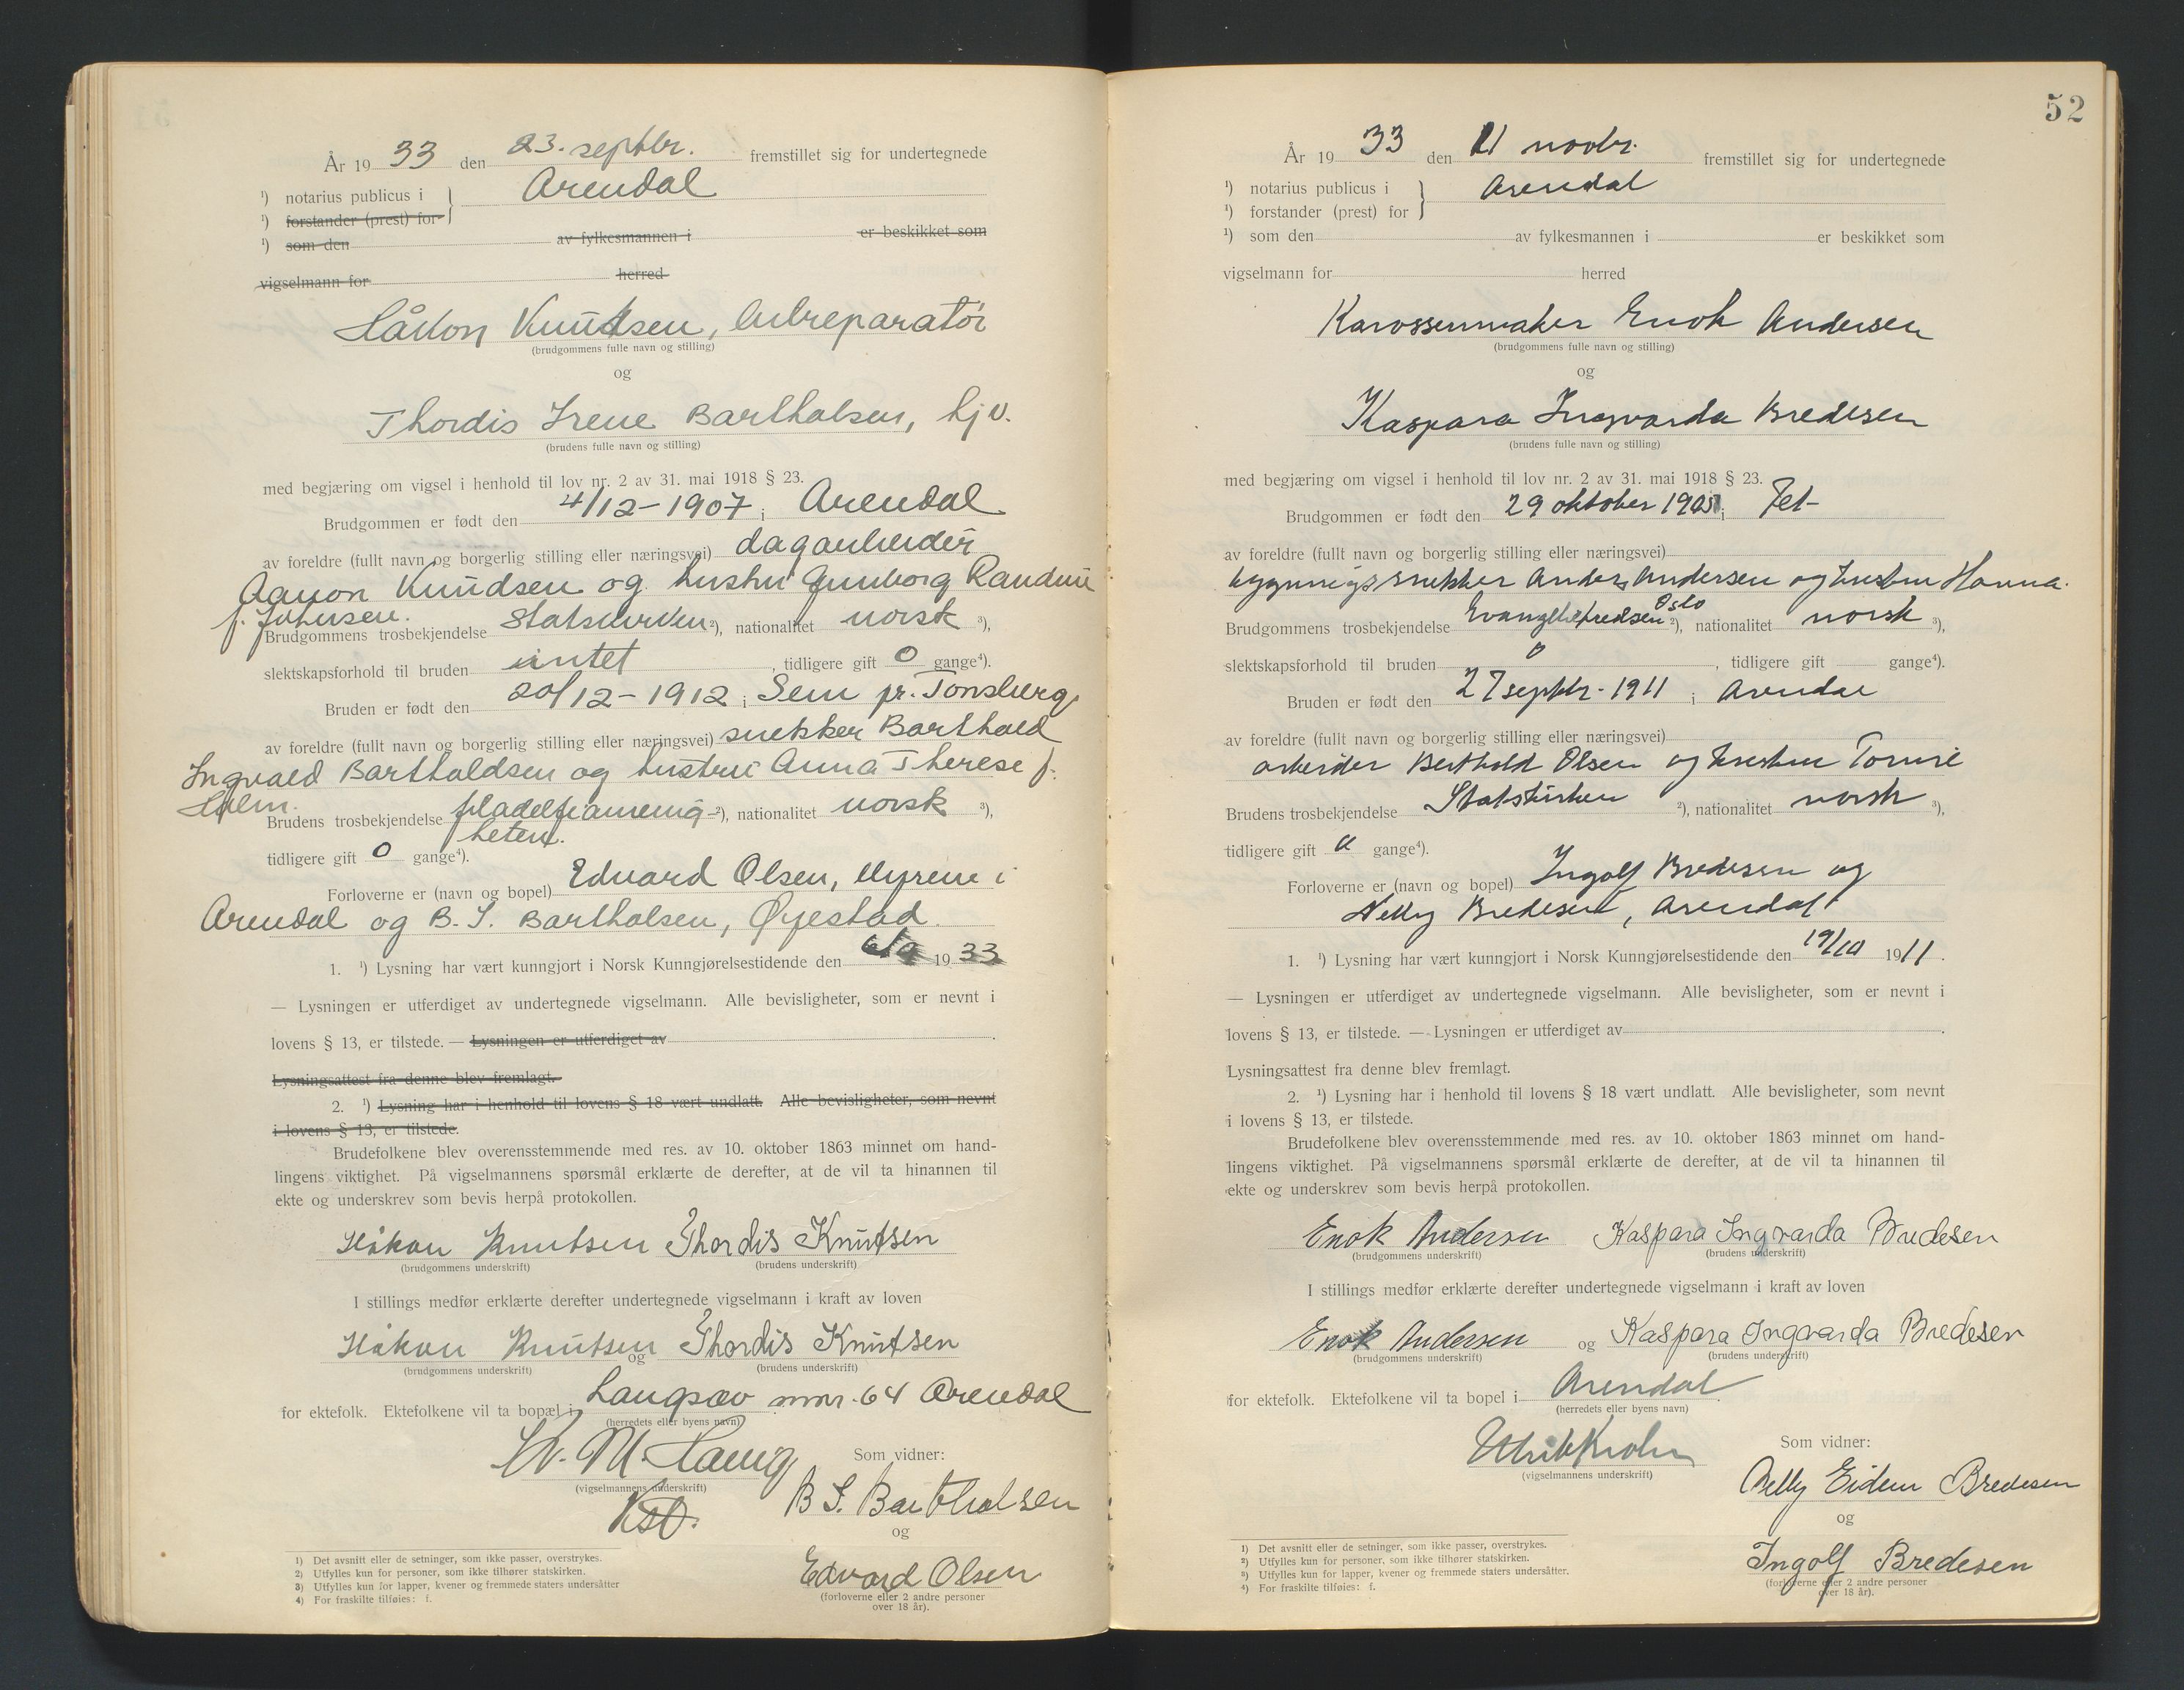 År 19 33 den 23. septbr. fremstillet sig for undertegnede
¹) notarius publicus i Arendal
¹) forstander (prest) for
¹) som den av fylkesmannen i er beskikket som
vigselmann for herred
Håkon Knudsen,
(brudgommens fulle navn og stilling)
og
Thordis Irene Bartholsen, hjv.
(brudens fulle navn og stilling)
med begjæring om vigsel i henhold til lov nr. 2 av 31. mai 1918 § 23.
Brudgommen er født den 4/12-1907 i Arendal
av foreldre (fullt navn og borgerlig stilling eller næringsvei) dagarbeider
Aanon Knudsen og hustru Gunborg Randine
f. Johnsen.
Brudgommens trosbekjendelse Statskirken ²), nationalitet norsk ³),
slektskapsforhold til bruden intet , tidligere gift 0 gange⁴).
Bruden er født den 20/12-1912 i Sem pr. Tønsberg
av foreldre (fullt navn og borgerlig stilling eller næringsvei) snekker Barthold
Ingvald Bartholdsen og hustru Anna Therese f.
Holm.
Brudens trosbekjendelse filadelfiamenig- ²), nationalitet norsk ³),
heten.
tidligere gift 0 gange⁴).
Forloverne er (navn og bopel) Edvard Olsen, Myrene i
Arendal og B. I. Bartholsen, Øyestad.
1. ¹) Lysning har vært kunngjort i Norsk Kunngjørelsestidende den 6/9 19 33
— Lysningen er utferdiget av undertegnede vigselmann. Alle bevisligheter, som er nevnt i
lovens § 13, er tilstede. — Lysningen er utferdiget av .
Lysningsattest fra denne blev fremlagt.
2. ¹) Lysning har i henhold til lovens § 18 vært undlatt. Alle bevisligheter, som nevnt
i lovens § 13, er tilstede.
Brudefolkene blev overensstemmende med res. av 10. oktober 1863 minnet om hand-
lingens viktighet. På vigselmannens spørsmål erklærte de derefter, at de vil ta hinannen til
ekte og underskrev som bevis herpå protokollen.
Håkon Knutsen Thordis Knutsen
(brudgommens underskrift) (brudens underskrift)
I stillings medfør erklærte derefter undertegnede vigselmann i kraft av loven
Håkon Knutsen og Thordis Knutsen
(brudgommens underskrift) (brudens underskrift)
for ektefolk. Ektefolkene vil ta bopæl i Langsæv mnr. 64 Arendal
(herredets eller byens navn)
Som vidner:
(vigselmannens underskrift)
Kst.
B I. Bartholsen
og
Edvard Olsen
(forloverne eller 2 andre personer
over 18 år).
1) Det avsnitt eller de setninger, som ikke passer, overstrykes.
2) Utfylles kun for personer, som ikke tilhører statskirken.
3) Utfylles kun for lapper, kvener og fremmede staters undersåtter
4) For fraskilte tilføies: f.
52
År 19 33 den 11 novbr. fremstillet sig for undertegnede
¹) notarius publicus i Arendal
¹) forstander (prest) for
¹) som den av fylkesmannen i er beskikket som
vigselmann for herred
Karossermaker Enok Andersen
(brudgommens fulle navn og stilling)
og
Kaspara Ingvarda Bredesen
(brudens fulle navn og stilling)
med begjæring om vigsel i henhold til lov nr. 2 av 31. mai 1918 § 23.
Brudgommen er født den 29 oktober 1905 i Fet
av foreldre (fullt navn og borgerlig stilling eller næringsvei)
bygningssnekker Anders Andersen og hustru Hanna
Oslo
Brudgommens trosbekjendelse ²), nationalitet norsk ³),
slektskapsforhold til bruden 0 , tidligere gift gange⁴).
Bruden er født den 27 septbr. 1911 i Arendal
av foreldre (fullt navn og borgerlig stilling eller næringsvei)
arbeider Berthold Olsen og hustru Tomine
Brudens trosbekjendelse Statskirken ²), nationalitet norsk ³),
tidligere gift 0 gange⁴).
Forloverne er (navn og bopel) Ingolf Bredesen og
Nelly Bredesen, Arendal
1. ¹) Lysning har vært kunngjort i Norsk Kunngjørelsestidende den 19/10 1911 .
— Lysningen er utferdiget av undertegnede vigselmann. Alle bevisligheter, som er nevnt i
lovens § 13, er tilstede. — Lysningen er utferdiget av .
Lysningsattest fra denne blev fremlagt.
2. ¹) Lysning har i henhold til lovens § 18 vært undlatt. Alle bevisligheter, som nevnt
i lovens § 13, er tilstede.
Brudefolkene blev overensstemmende med res. av 10. oktober 1863 minnet om hand-
lingens viktighet. På vigselmannens spørsmål erklærte de derefter, at de vil ta hinannen til
ekte og underskrev som bevis herpå protokollen.
Enok Andersen Kaspara Ingvarda Bredesen
(brudgommens underskrift) (brudens underskrift)
I stillings medfør erklærte derefter undertegnede vigselmann i kraft av loven
Enok Andersen og Kaspara Ingvarda Bredesen
(brudgommens underskrift) (brudens underskrift)
for ektefolk. Ektefolkene vil ta bopel i Arendal
(herredets eller byens navn)
Ulrik Krohn Som vidner:
(vigselmannens underskrift)
Nelly Eidem Bredesen
og
Ingolf Bredesen
(forloverne eller 2 andre personer
over 18 år).
1) Det avsnitt eller de setninger, som ikke passer, overstrykes.
2) Utfylles kun for personer, som ikke tilhører statskirken.
3) Utfylles kun for lapper, kvener og fremmede staters undersåtter.
4) For fraskilte tilføies: f.